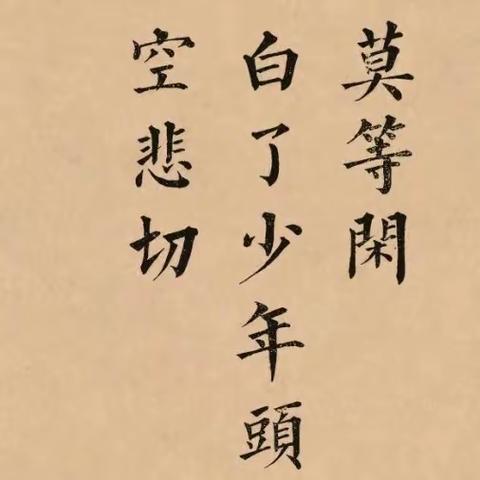 莫等閑
白了少年頭
空悲切